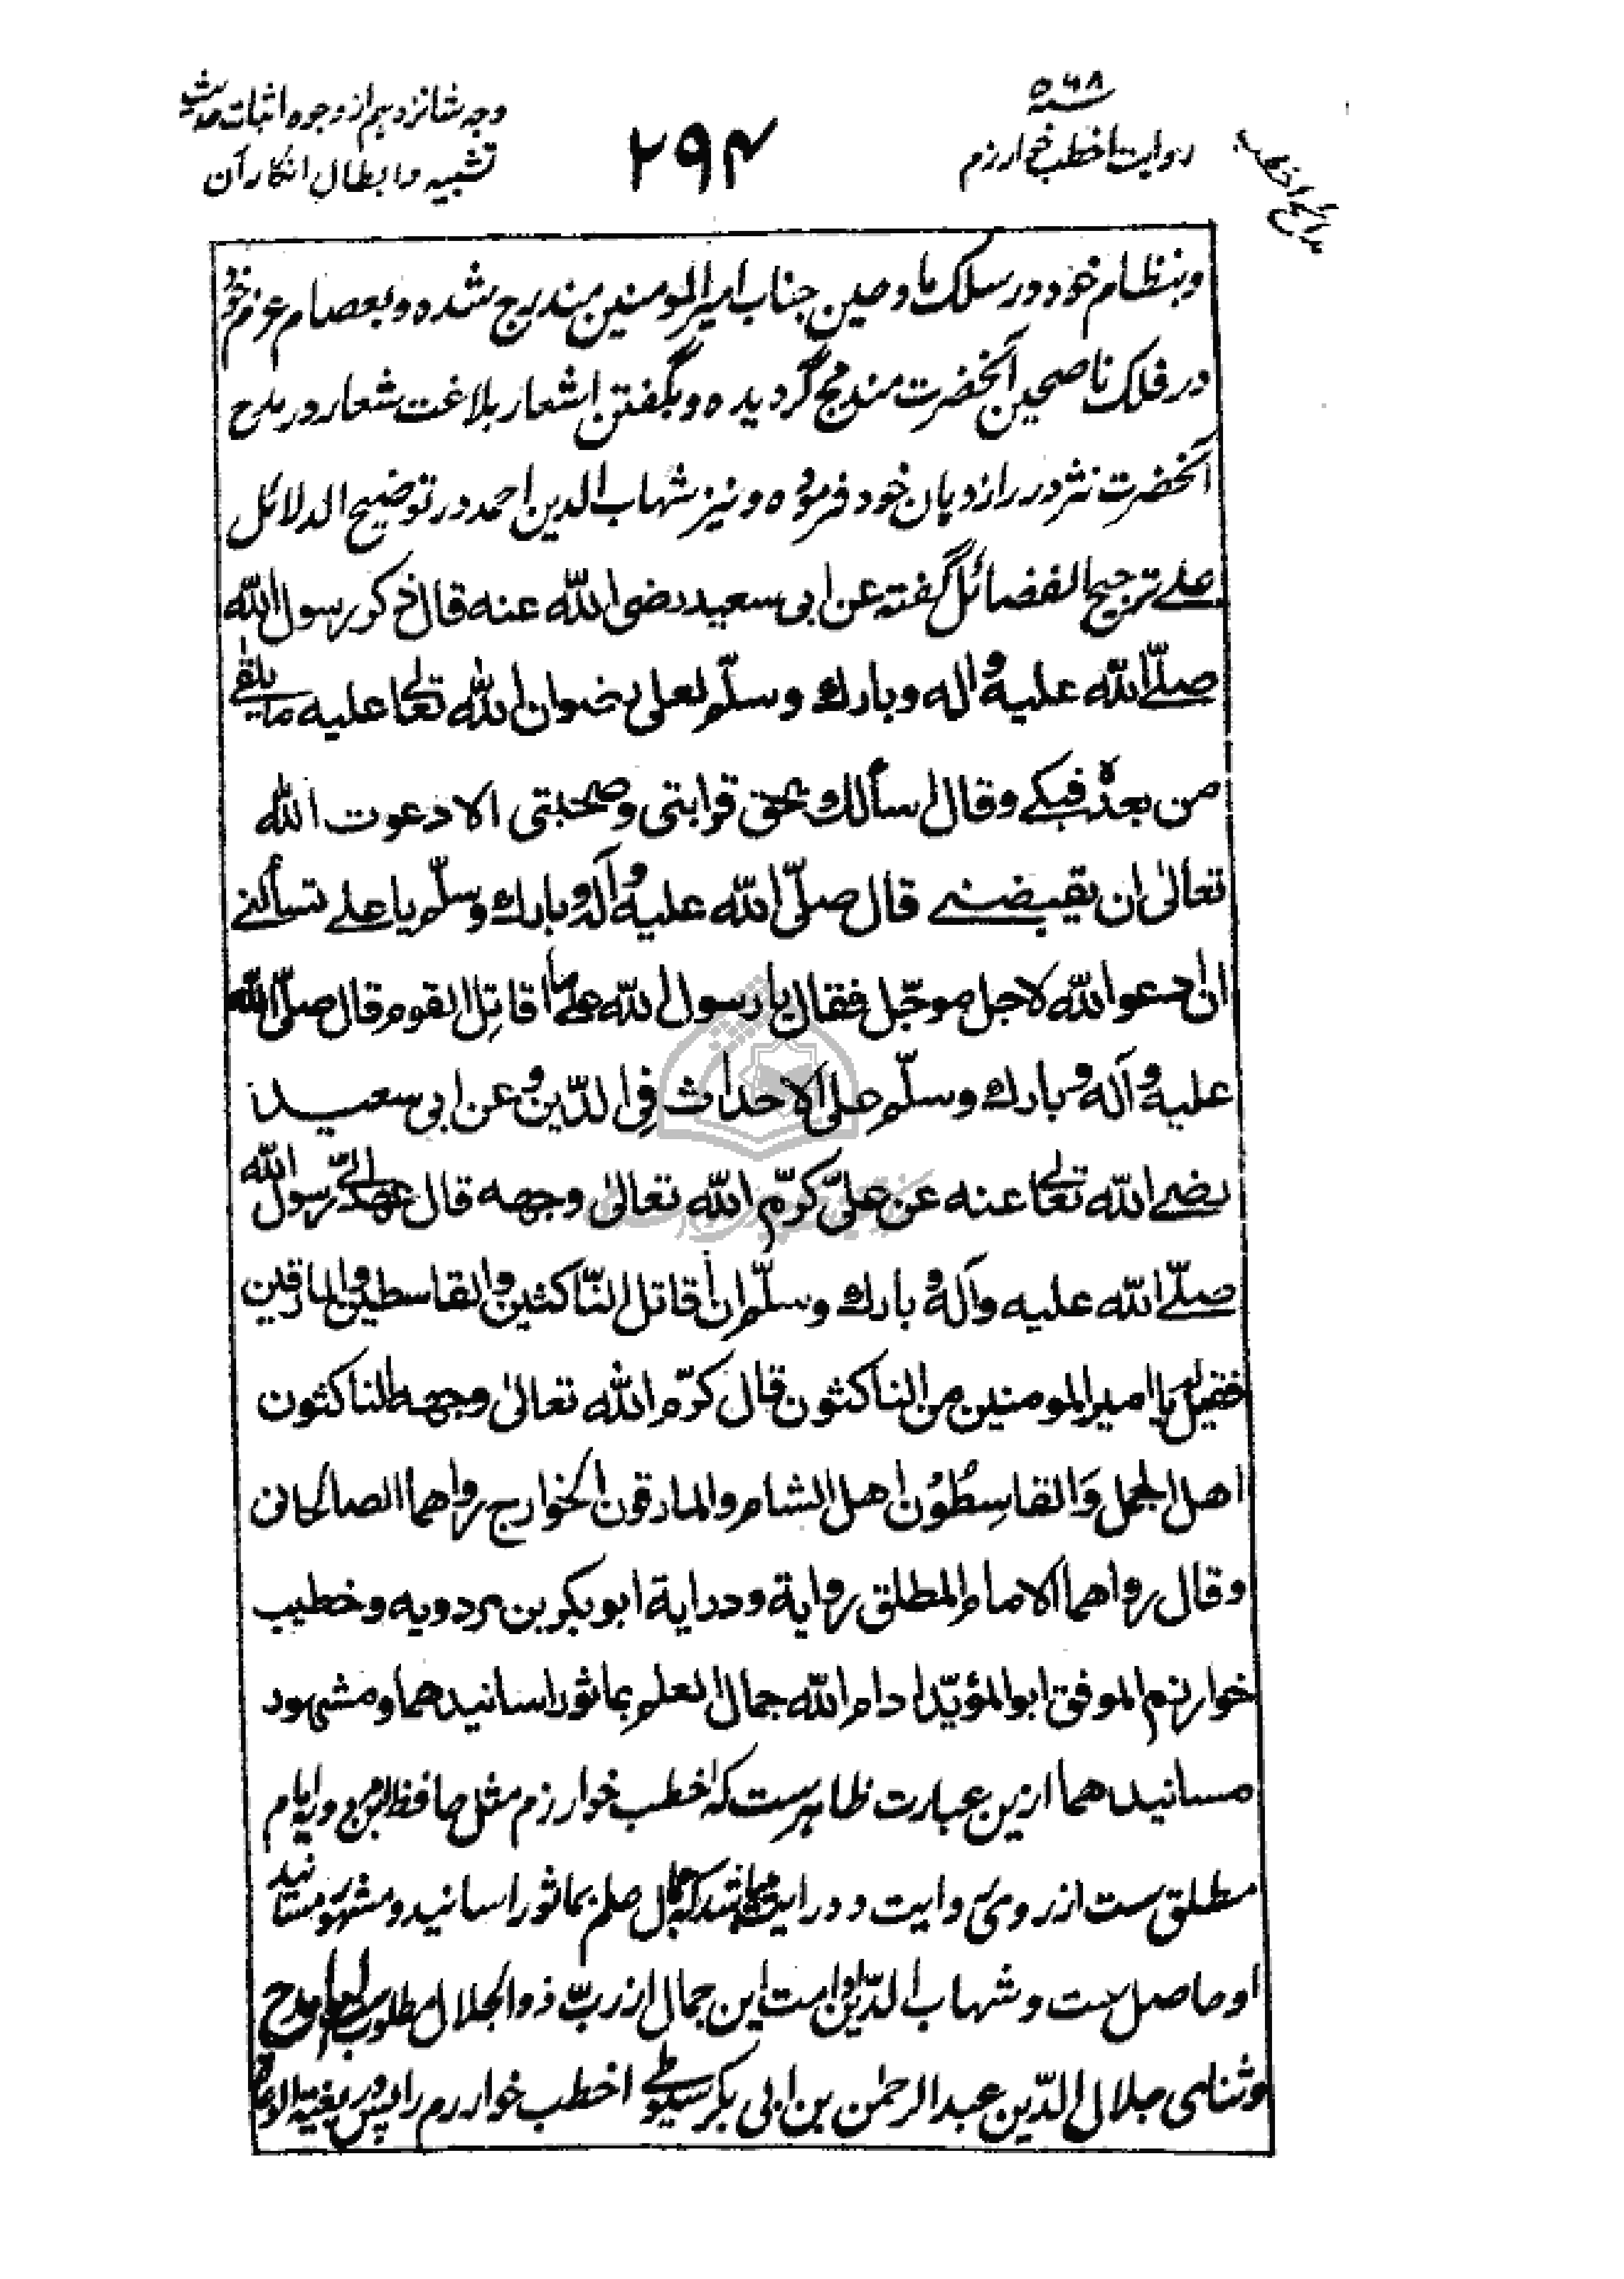 وجه شانزدهم از وجوه اثبات حدیث
تشبیه و ابطال انکار آن
۲۹۴
۵۶۸
روایت اخطب خوارزم
مدائح اخطب
وبنظام خود در سلک مادحین جناب امیرالمومنین مندرج شده و بعصام عزم خود
در فلک ناصحین آنحضرت مندمج گردیده و بگفتن اشعار بلاغت شعار در مدح
آنحضرت نثر درر از دهان خود فرموده و نیز شهاب الدین احمد در توضیح الدلائل
علے ترجیح الفضائل گفته عن ابی سعید رضی الله عنه قال ذکر رسول الله
صلّے الله علیه واله وبارك وسلّم لعلی رضوان الله تعالى علیه ما یلقے
من بعده فبکے وقال اسألك بحق قرابتی وصحبتی الا دعوت الله
تعالىٰ ان یقبضنے قال صلّی الله علیه وآله وبارك وسلّم یا علے تسألنے
ان ادعو الله لاجل موجّل فقال یا رسول الله على ما اقاتِل القوم قال صلّی الله
علیه وآله وبارك وسلّم على الاحداث فی الدّین وعن ابی سعید
رضی الله تعالى عنه عن علیّ کرّم الله تعالىٰ وجهه قال عهد الیّ رسول الله
صلّے الله علیه وآله وبارك وسلّم ان اقاتل النّاکثین والقاسطین والمارقین
فقیل له یا امیرالمومنین من الناکثون قال کرّم الله تعالىٰ وجهه الناکثون
اهل الجمل وَالقاسِطُوْن اهل الشام والمارقون الخوارج رواهما الصالحانی
وقال رواهما الامام المطلق روایة ودرایة ابوبکر بن مردویه وخطیب
خوارزم الموفق ابو المؤیّد ادام الله جمال العلم بماثور اسانیدهما ومشهور
مسانیدهما ازین عبارت ظاهرست که اخطب خوارزم مثل حافظ ابن مردویه امام
مطلق ست از روی روایت و درایت میباشد که جمال علم بماثور اسانید و مشهور مسانید
او حاصل ست و شهاب الدّین ادامت این جمال از ربّ ذوالجلال مطلوب
وثنای جلال الدّین عبدالرحمٰن بن ابی بکر سیوطے اخطب خوارزم را پس در بغیة الوعاة